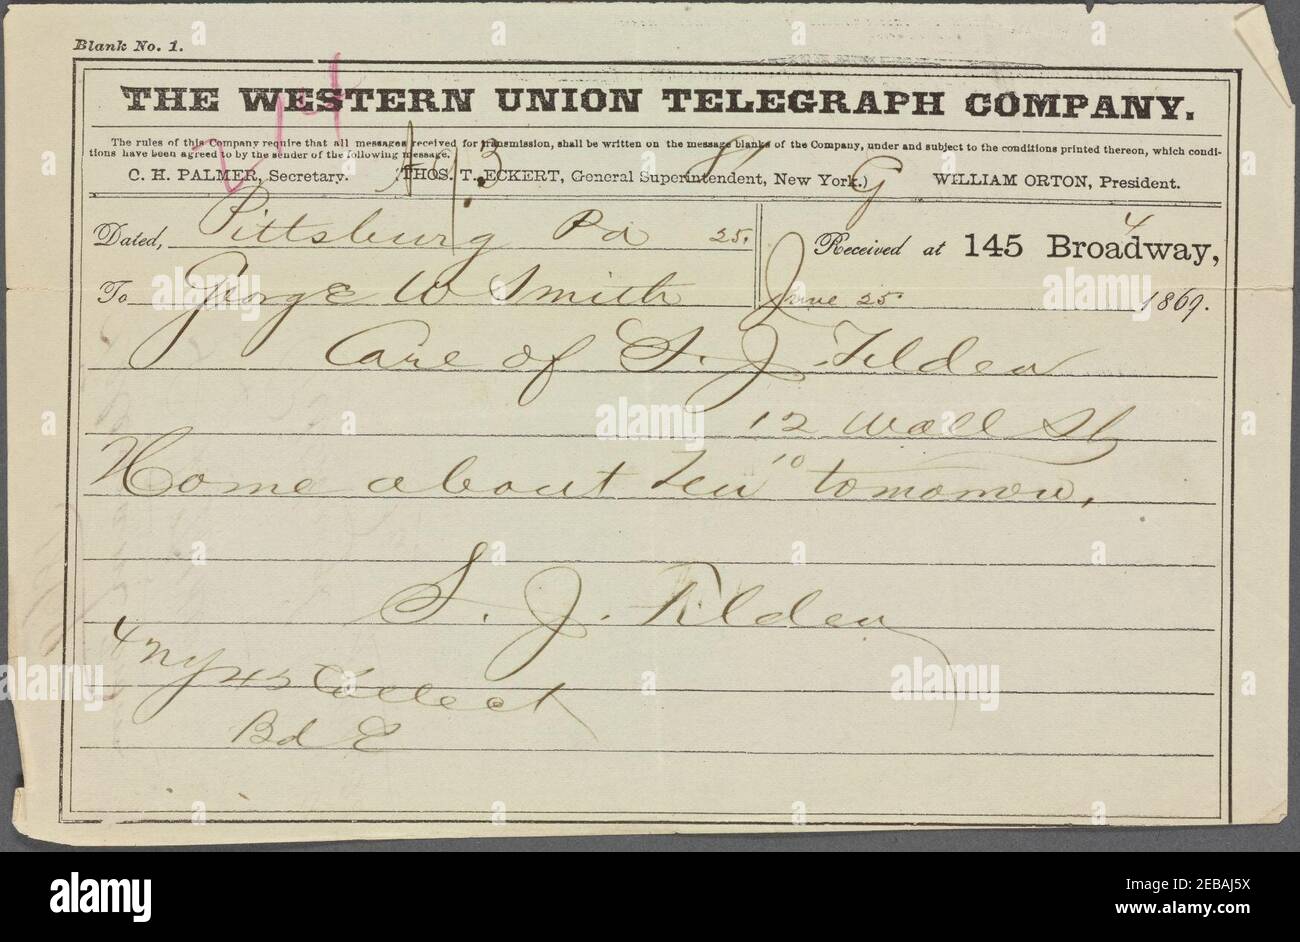 Blank No. 1.
THE WESTERN UNION TELEGRAPH COMPANY.
The rules of this Company require that all messages received for transmission, shall be written on the message blanks of the Company, under and subject to the conditions printed thereon, which condi-
tions have been agreed to by the sender of the following message.
C. H. PALMER, Secretary. (THOS. T. ECKERT, General Superintendent, New York.) WILLIAM ORTON, President.
13 G
Dated, Pittsburg Pa 25. Received at 145 Broadway,
4
To George W Smith June 25 1869.
Care of S. J. Tilden
12 Wall St
Home about ten 10 tomorrow.
S. J. Tilden
Collect
Bd E
alamy
Image ID: 2EBAJ5X
www.alamy.com